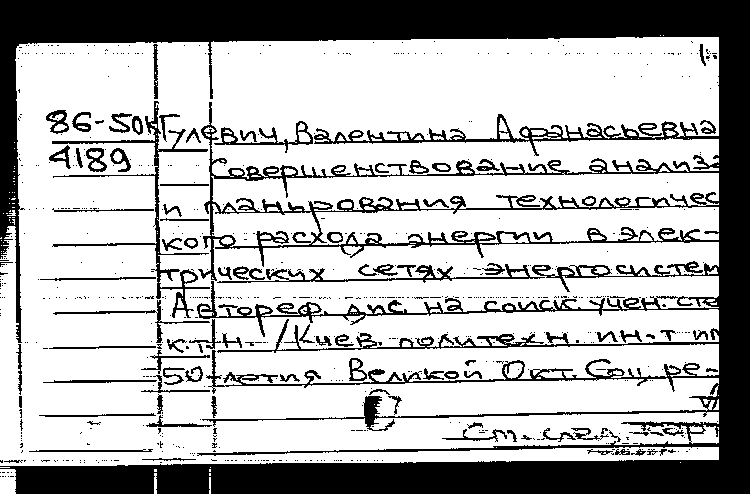 86-50к Гулевич, Валентина Афанасьевна
4189 Совершенствование анализа
и планирования технологичес
кого расхода энергии в элек-
трических сетях энергосистем
Автореф. дис. на соиск. учен. сте
к.т.н. / Киев. политехн. ин-т им
50-летия Великой Окт. Соц. ре-
См. след. карт